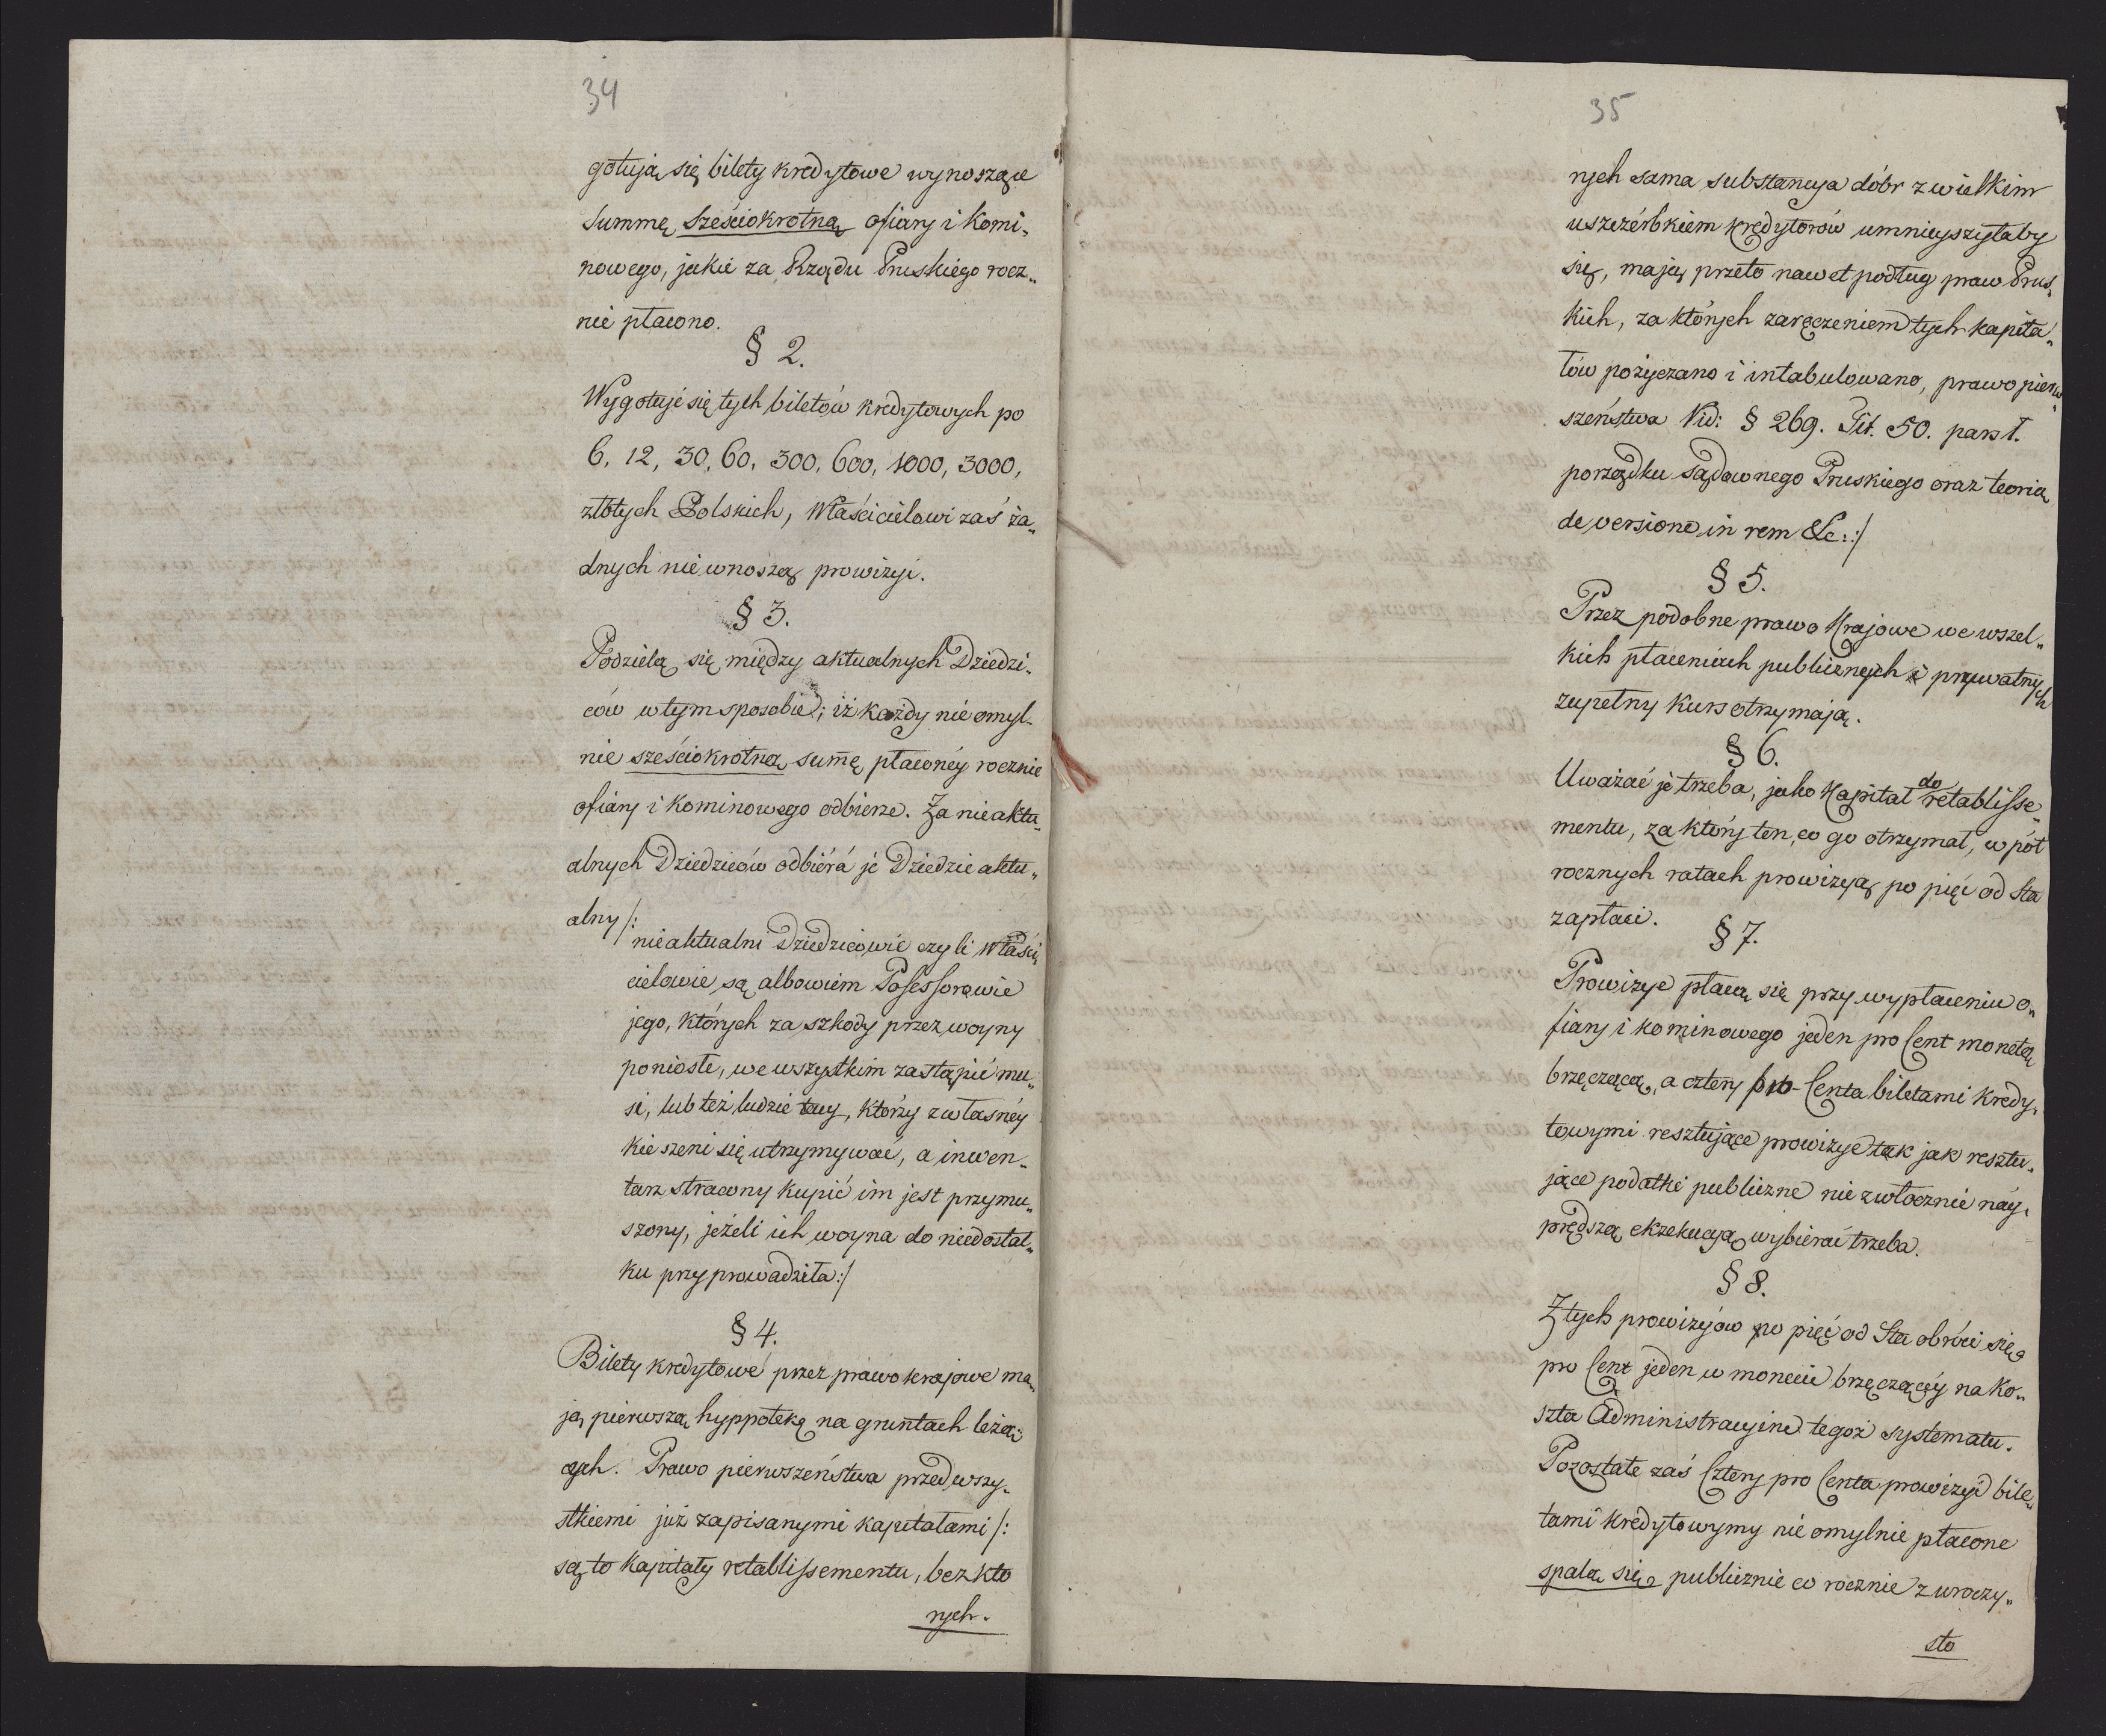 34
gotują się bilety kredytowe wynoszące
summę sześciokrotną ofiary i komi„
nowego, jakie za Rządu Pruskiego rocz„
nie płacono.
§ 2.
Wygotuje się tych biletów kredytowych po
6, 12, 30, 60, 300, 600, 1000, 3000,
złotych Polskich, Właścicielowi zaś ża„
dnych nie wnoszą prowizyi.
§ 3.
Podzielą się między aktualnych Dziedzi„
ców w tym sposobie; iż każdy nie omyl„
nie sześciokrotną sum̄ę płaconéy rocznie
ofiary i kominowego odbierze. Za nieaktu„
alnych Dziedziców odbiérá je Dziedzic aktu„
alny /:
nieaktualni Dziedzicowie czyli Właści„
cielowie są albowiem Possessorowie
jego, których za szkody przez woyny
poniosłe, we wszystkim zastąpić mu„
si, lub też ludzie tacy, którzy z własnéy
kieszeni się utrzymywać, a inwen„
tarz stracony kupić im jest przymu„
szony, jeżeli ich woyna do niedostat„
ku przyprowadziła:/
§ 4.
Bilety kredytowe przez prawo krajowe ma„
ją pierwszą hyppotekę na gruntach leżą„
cych. Prawo pierwszeństwa przed wszy„
stkiemi już zapisanymi kapitałami /:
są to kapitały retablissementu, bez któ
rych.
35
rych sama substancya dóbr z wielkim
uszczérbkiem kredytorów umnieyszyłaby
się, mają przeto nawet podług praw Prus„
kich, za których zaręczeniem tych kapita„
łów pożyczano i intabulowano, prawo pierw„
szeństwa Vid: § 269. Tit. 50. pars I.
porządku sądownego Pruskiego oraz teorią
de versione in rem &c:/
§ 5.
Przez podobne prawo Krajowe we wszel„
kich płaceniach publicznych i prywatnych
zupełny kurs otrzymają.
§ 6.
Uważać je trzeba, jako Kapitał do retablisse„
mentu, za który ten, co go otrzymał, w pół
rocznych ratach prowizyą po pięć od sta
zapłaci.
§ 7.
Prowizye płacą się przy wypłaceniu o„
fiary i kominowego jeden pro Cent monetą
brzęczącą, a cztery pro Centa biletami kredy„
towymi resztujące prowizye tak jak resztu„
jące podatki publiczne nie zwłocznie náy„
prędszą exzekucyą wybierać trzeba.
§ 8.
Z tych prowizyów po pięć od Sta obróci się
pro Cent jeden w monecie brzęczącéy na ko„
szta Administracyine tegoż systematu.
Pozostałe zaś Cztery pro Centa prowizyi bile„
tami kredytowymy nie omylnie płacone
spalą się publicznie co rocznie z uroczy„
sto